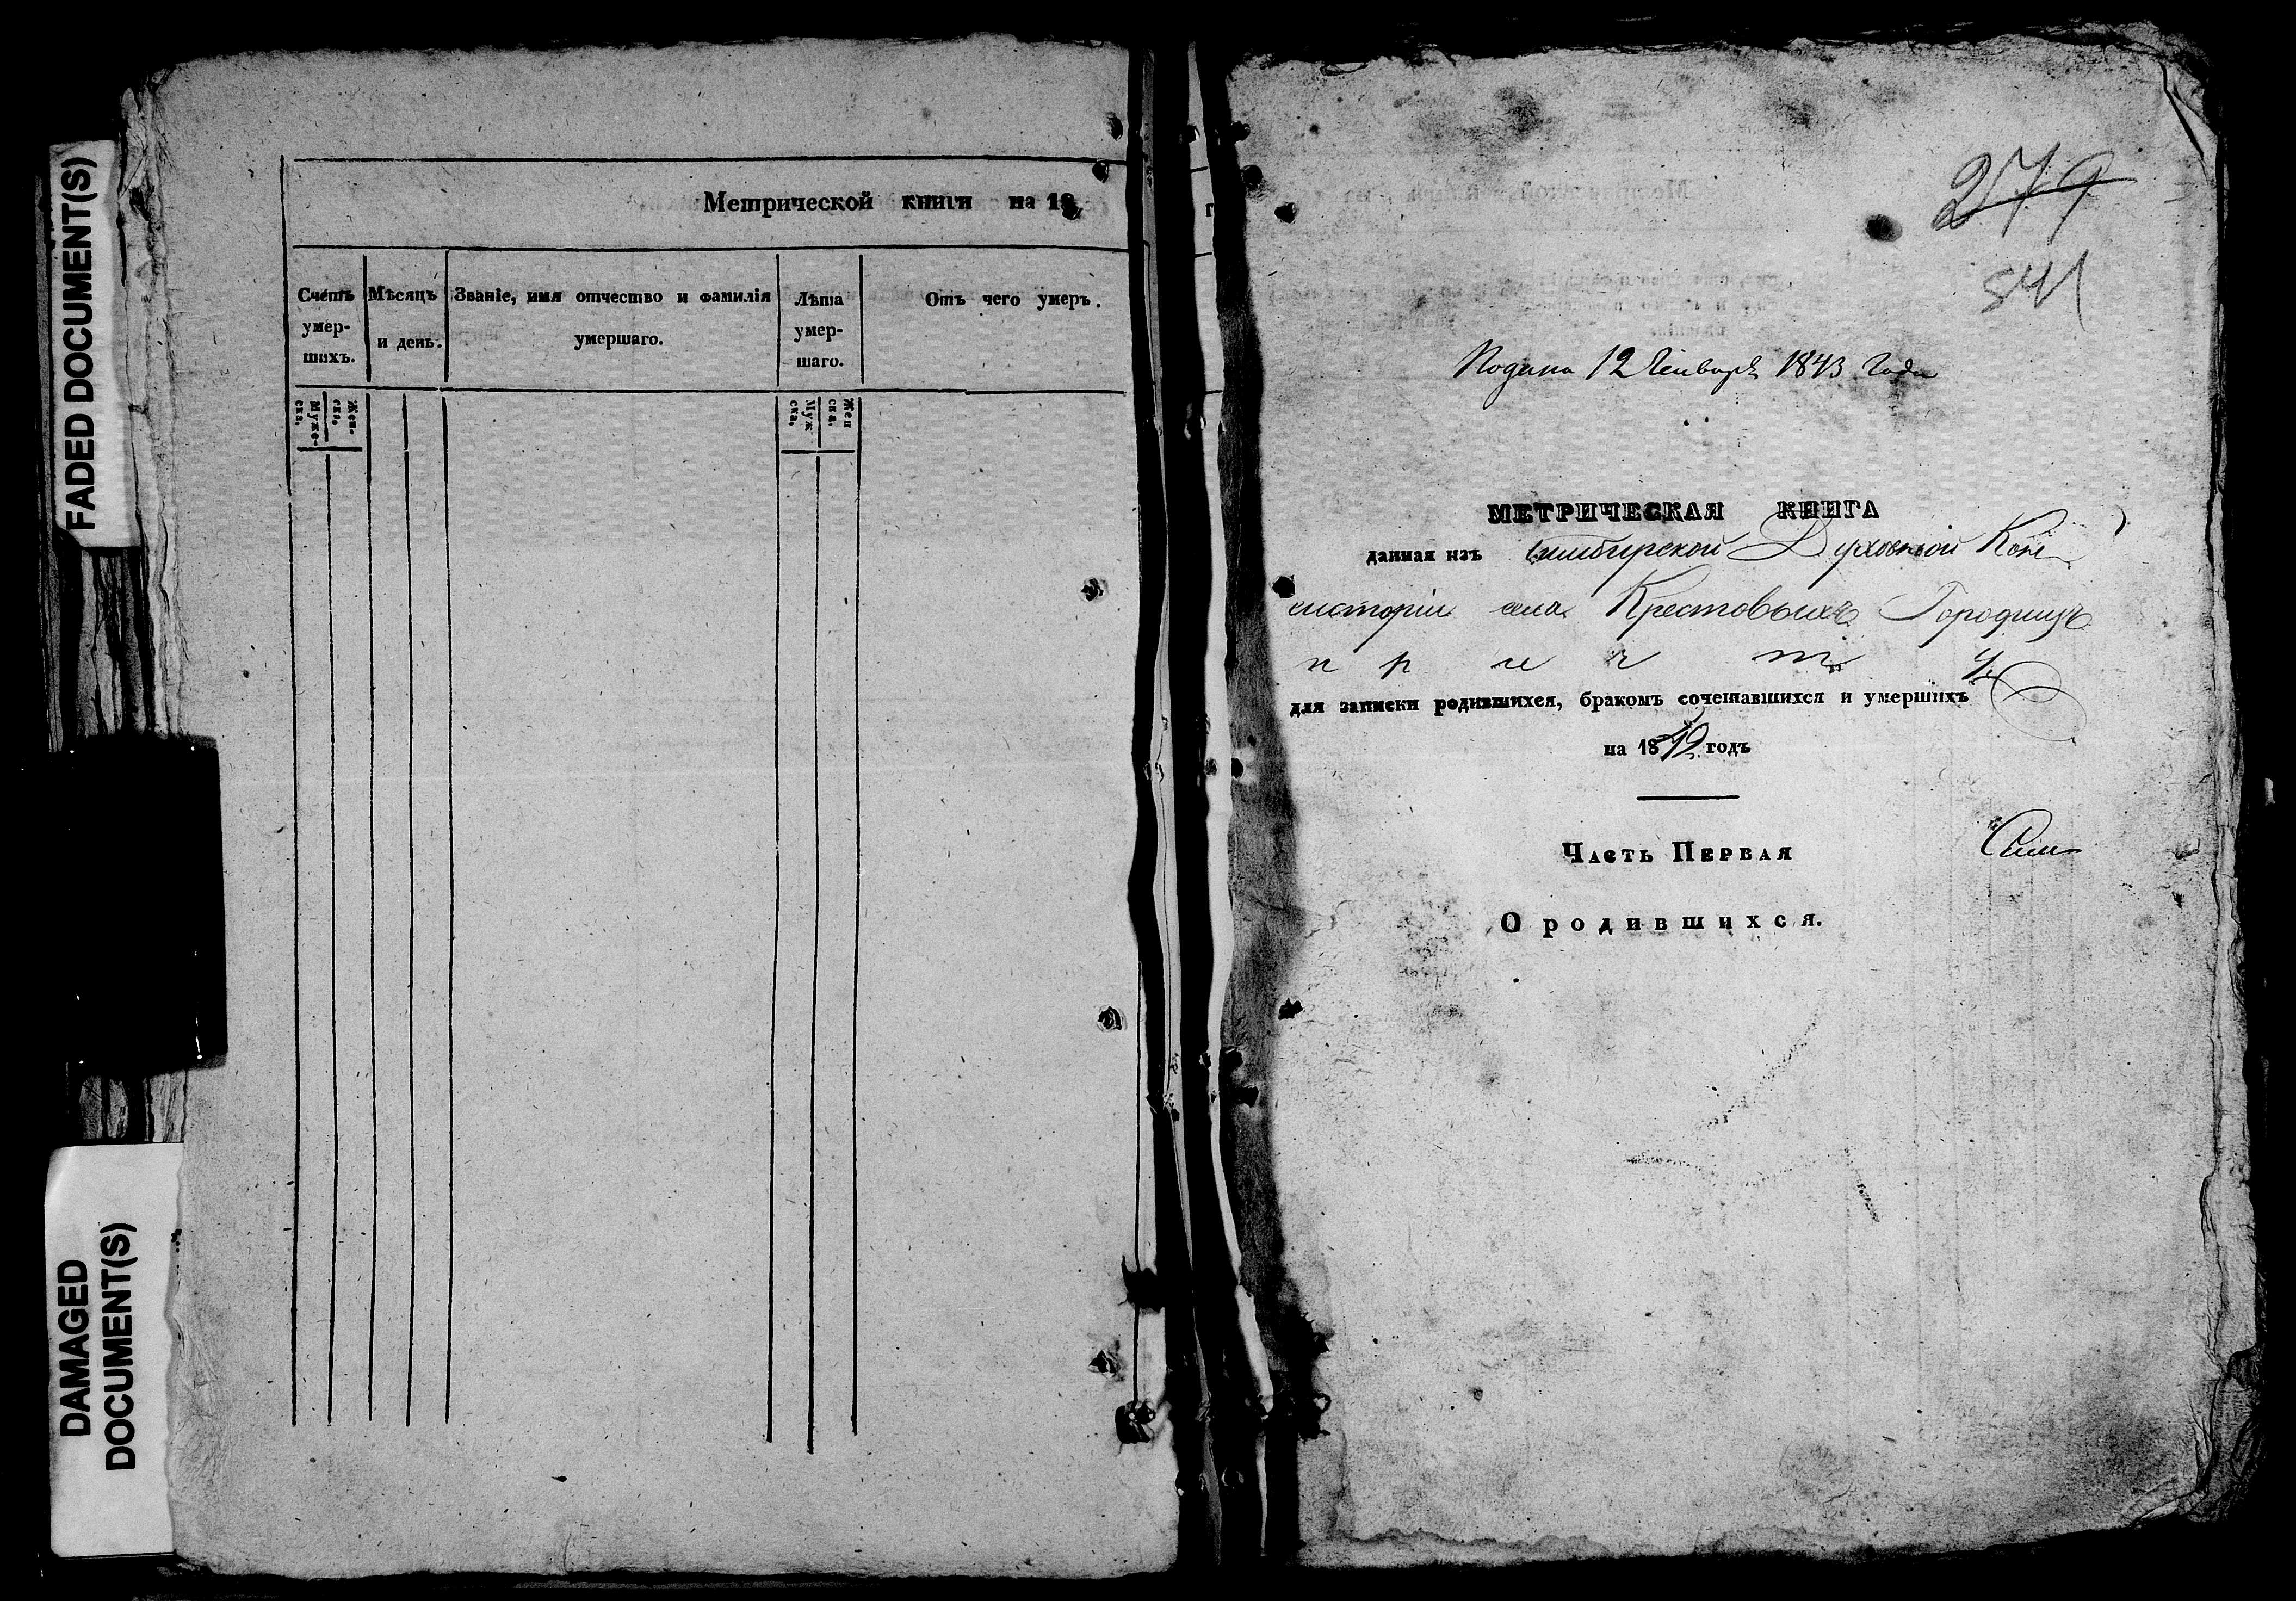 FADED DOCUMENT(S)
DAMAGED
DOCUMENT(S)
Метрической книги на 18
Счетъ умер- шихъ.
Мѣсяцъ и день.
Званіе, имя отчество и фамилія умершаго.
Лѣта умер- шаго.
Отъ чего умеръ.
Муже- ска.
Жен- ска.
Муж ска.
Жен ска.
279
541
Подана 12 Генваря 1843 Года
МЕТРИЧЕСКАЯ КНИГА
данная изъ Симбирской Духовной Кон-
систоріи села Крестовыхъ Городищъ
причту
для записки родившихся, бракомъ сочетавшихся и умершихъ
на 1842 годъ
Часть Первая
О родившихся.